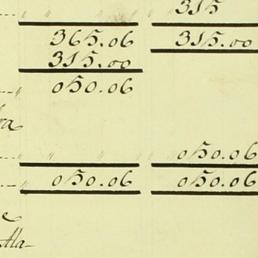 315
365.06 315.00
315.00
050.06
ra
050.06
050.06 050.06
e
tta